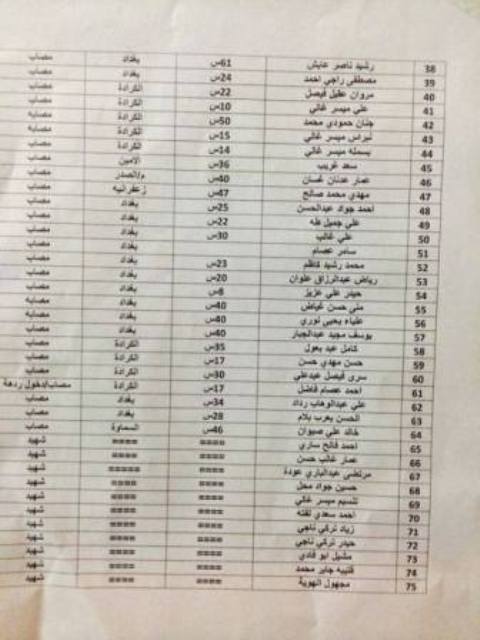 38 رشيد ناصر عايش 61س بغداد مصاب
39 مصطفى راجي احمد 24س بغداد مصاب
40 مروان عقيل فيصل 22س الكرادة مصاب
41 علي ميسر غالي 10س الكرادة مصاب
42 جنان حمودي محمد 50س الكرادة مصابه
43 نبراس ميسر غالي 15س الكرادة مصابه
44 بسمله ميسر غالي 14س الكرادة مصابه
45 سعد غريب 36س الامين مصاب
46 عمار عدنان غسان 40س م/الصدر مصاب
47 مهدي محمد صالح 47س زعفرانيه مصاب
48 احمد جواد عبدالحسن 25س بغداد مصاب
49 علي جميل طه 22س بغداد مصاب
50 علي غالب 30س بغداد مصاب
51 سامر عصام بغداد مصاب
52 محمد رشيد كاظم 23س بغداد مصاب
53 رياض عبدالرزاق علوان 20س بغداد مصاب
54 حيدر علي عزيز 8س بغداد مصاب
55 منى حسن 40س بغداد مصابه
56 علياء يحيى نوري 40س بغداد مصابه
57 يوسف مجيد عبدالجبار 40س بغداد مصاب
58 كامل عبد 35س الكرادة مصاب
59 حسن مهدي حسن 17س الكرادة مصاب
60 سرى فيصل عبدعلي الكرادة مصاب
61 احمد عصام فاضل 17س الكرادة مصاب/دخول ردهة
62 علي عبدالوهاب رداد 34س بغداد مصاب
63 الحسن يعرب 28س بغداد مصاب
64 خالد علي صيوان 46س السماوة مصاب
65 احمد فالح ساري ==== ==== شهيد
66 عمار غالب حسن ==== ==== شهيد
67 مرتضى عبدالباري عودة ==== ===== شهيد
68 حسين جواد ==== ==== شهيد
69 تنسيم ميسر غالي ==== ==== شهيد
70 احمد سعدي لفته ==== ==== شهيد
71 زياد تركي ناجي ==== ==== شهيد
72 حيدر تركي ناجي ==== ==== شهيد
73 مشيل ابو فادي ==== ==== شهيد
74 قتيبه جابر محمد ==== ==== شهيد
75 مجهول الهوية ==== ==== شهيد